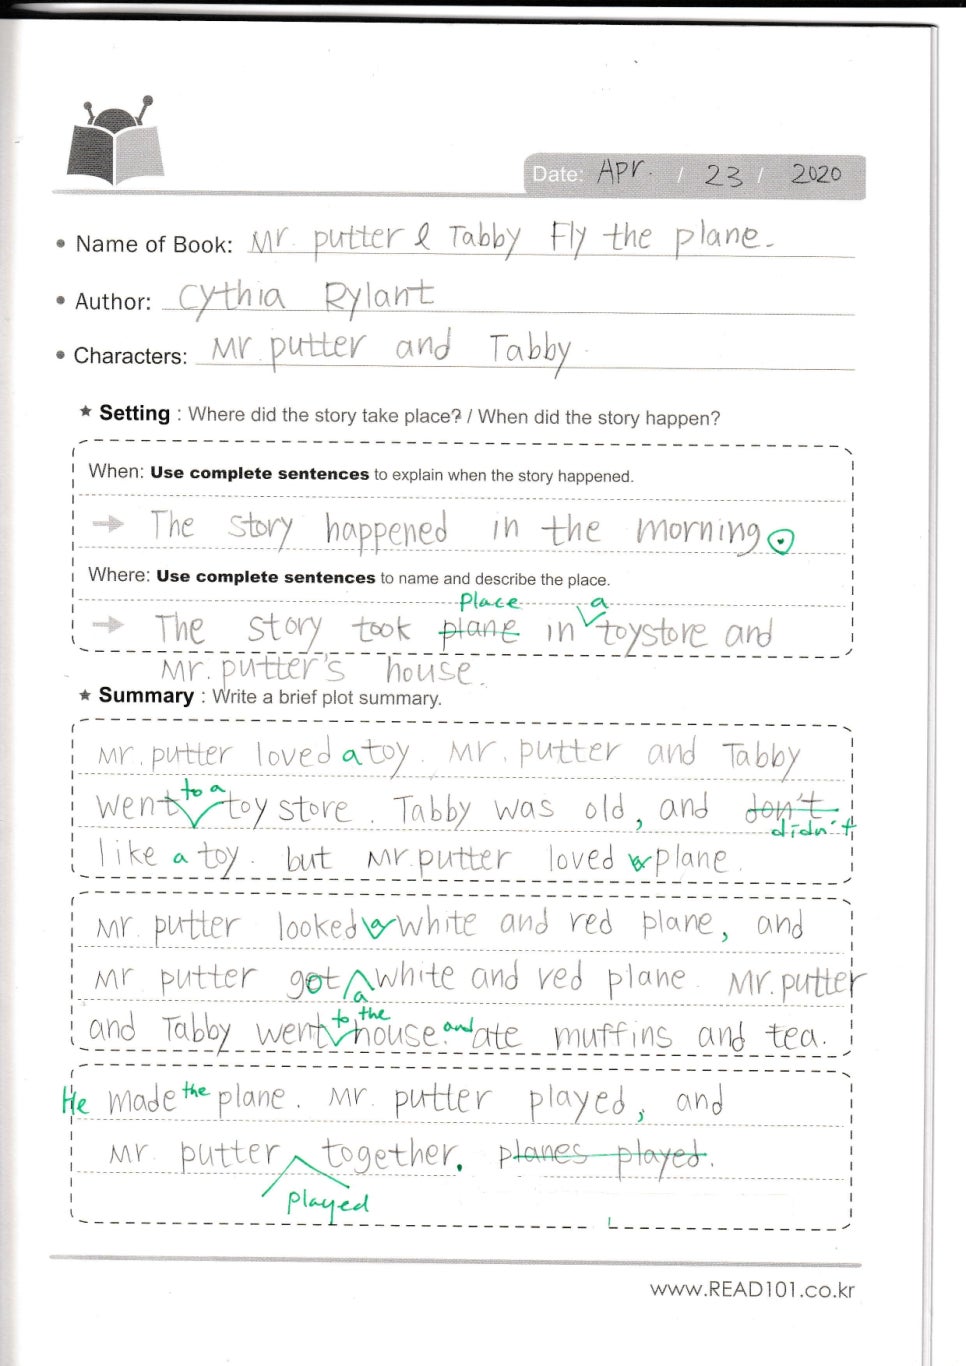 Date: Apr. / 23 / 2020
• Name of Book: Mr. putter & Tabby Fly the plane.
• Author: Cythia Rylant
• Characters: Mr. putter and Tabby
★ Setting : Where did the story take place? / When did the story happen?
When: Use complete sentences to explain when the story happened.
→ The story happened in the morning.
Where: Use complete sentences to name and describe the place.
place a
→ The story took plane in toystore and
Mr. putter's house.
★ Summary : Write a brief plot summary.
Mr. putter loved a toy. Mr. putter and Tabby
to a
went toy store. Tabby was old, and don't
didn't
like a toy. but Mr. putter loved a plane.
Mr. putter looked a white and red plane, and
Mr putter got white and red plane. Mr. putter
a
to the
and Tabby went house. and ate muffins and tea.
He made the plane. Mr. putter played, and
Mr. putter together. planes played.
played
www.READ101.co.kr